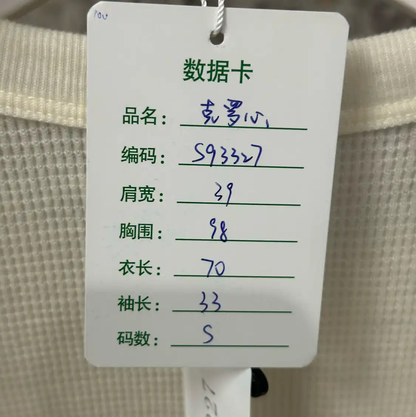 数据卡
品名：克罗心
编码：S93327
肩宽：39
胸围：98
衣长：70
袖长：33
码数：S